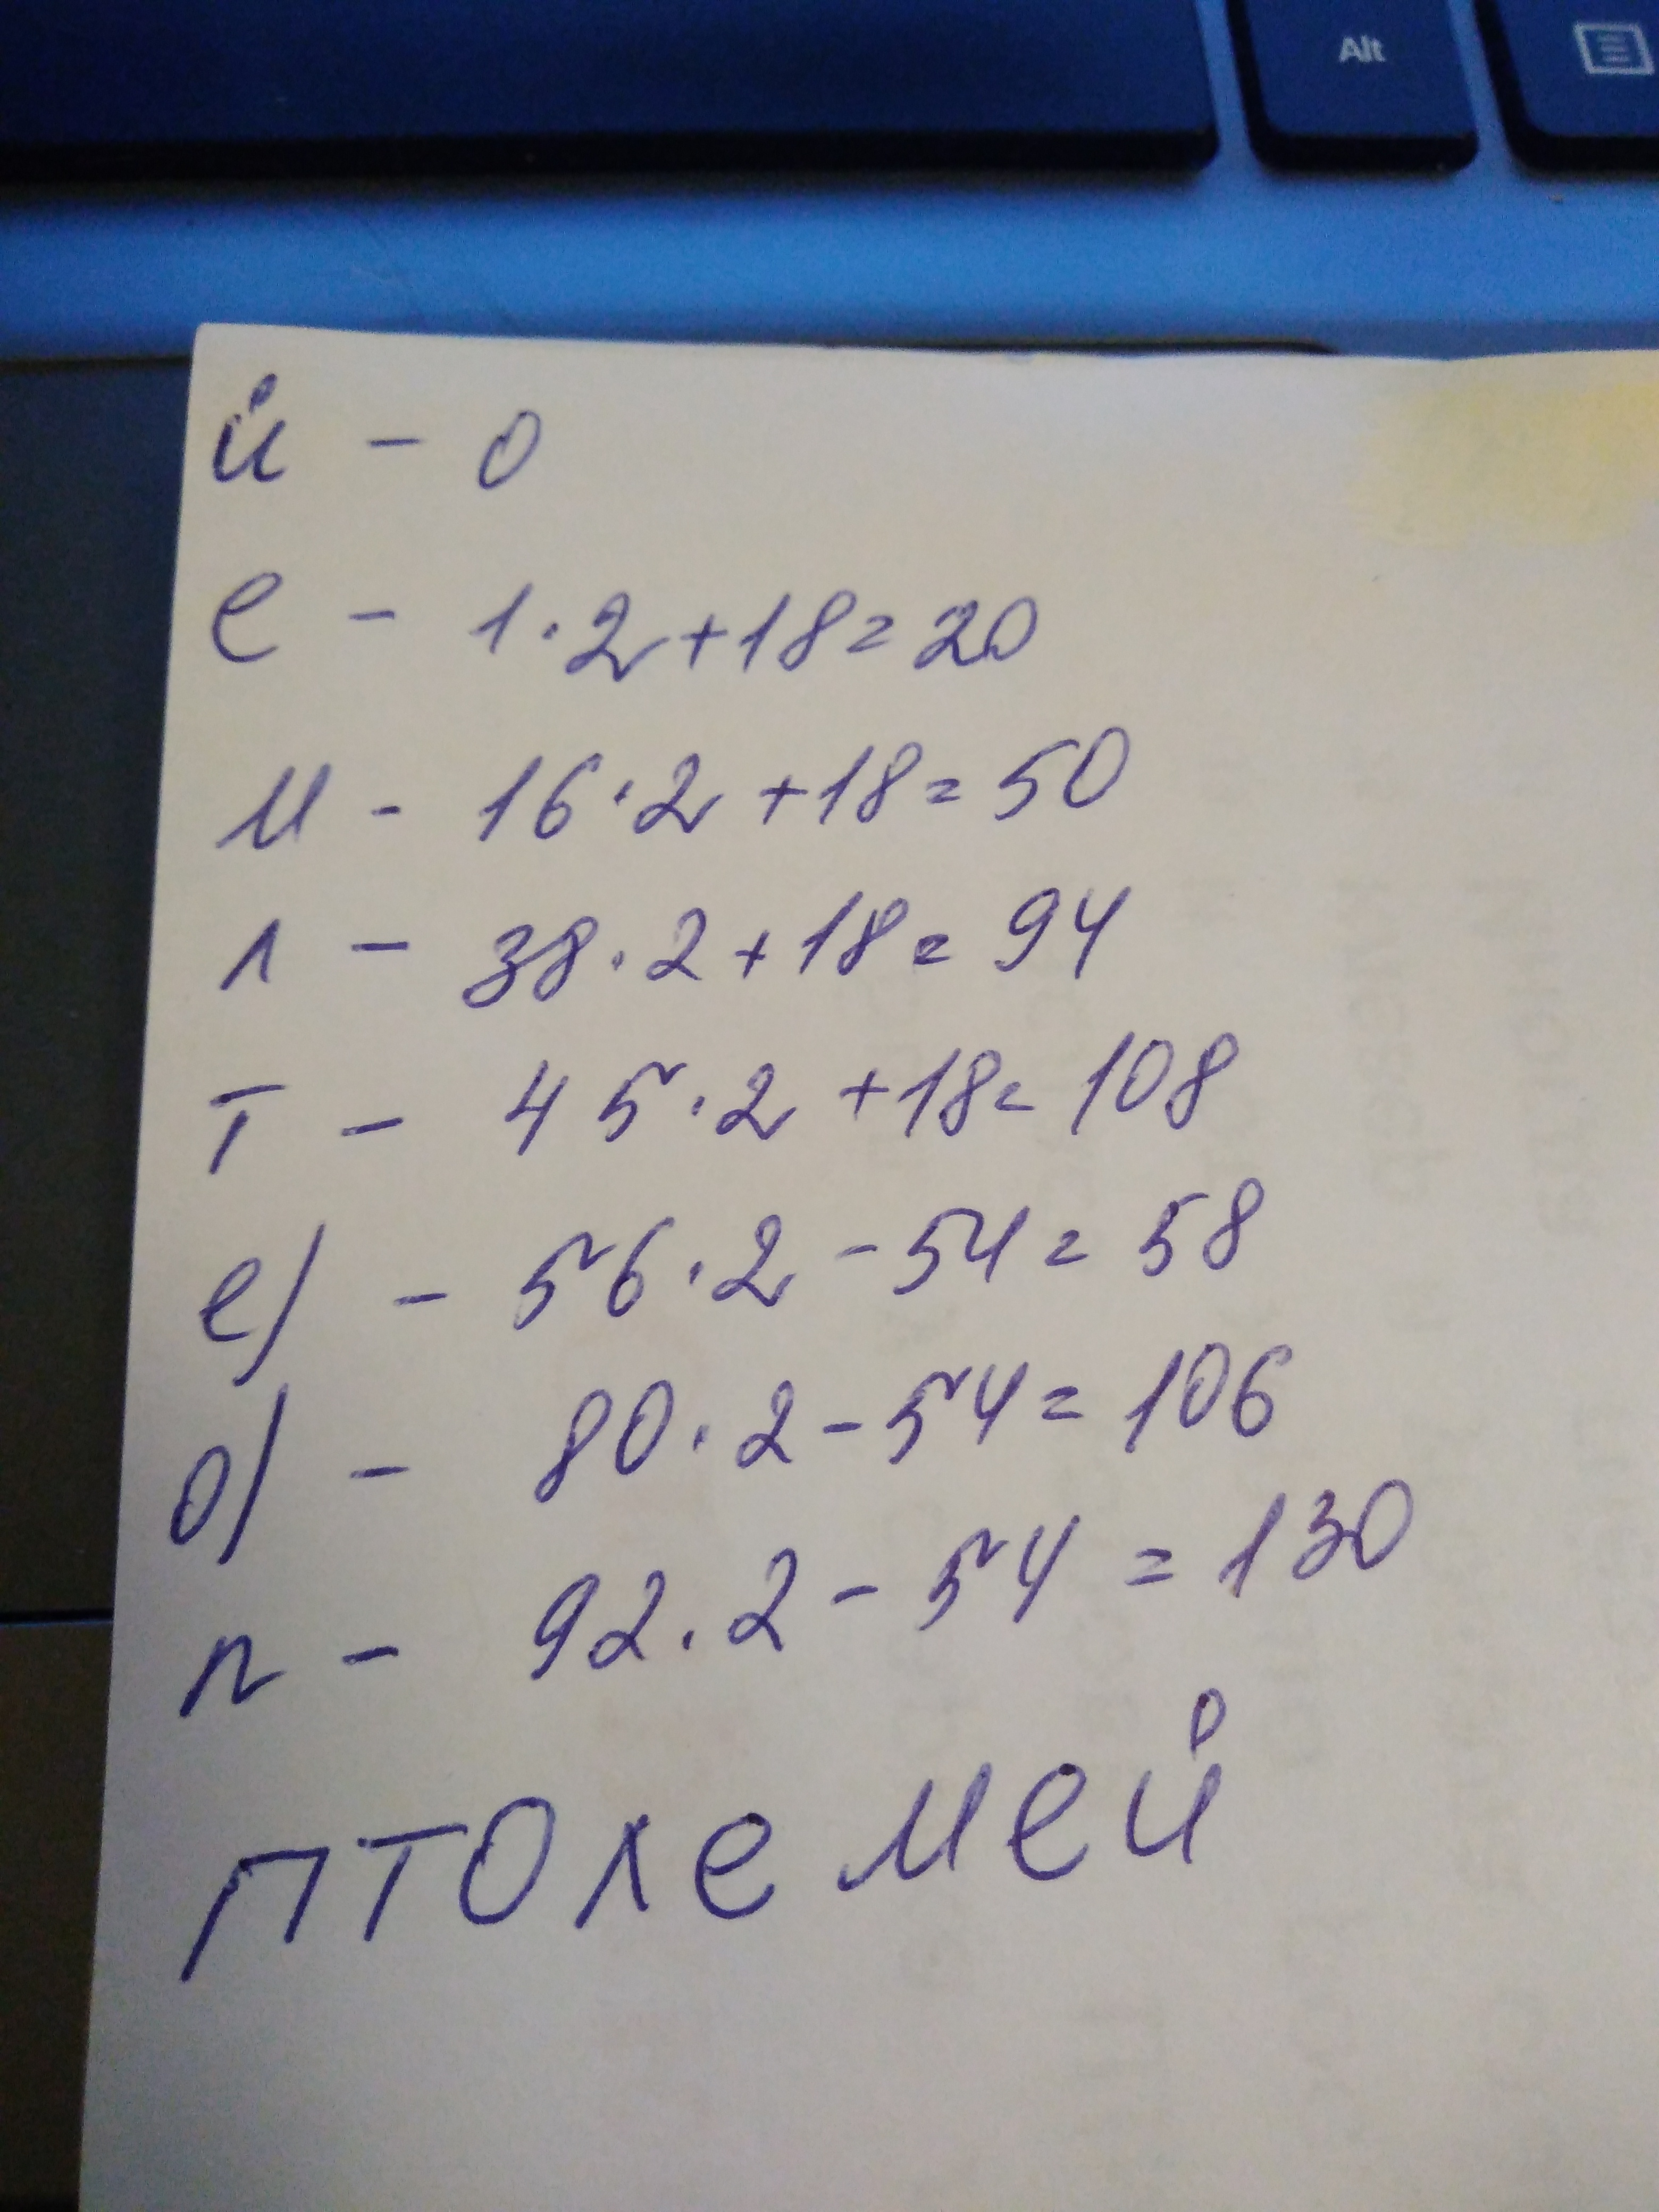 Alt
й - 0
е - 1·2+18=20
м - 16·2+18=50
л - 38·2+18=94
т - 45·2+18=108
е) - 56·2-54=58
о) - 80·2-54=106
п - 92·2-54=130
ПТОЛЕМЕЙ